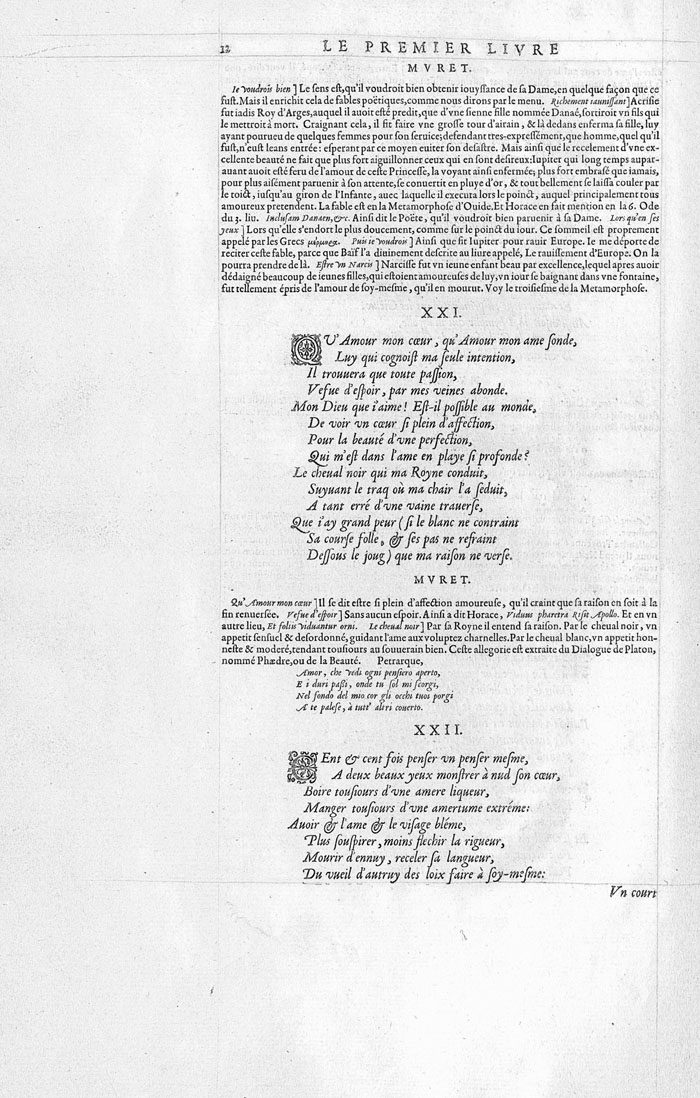 12 LE PREMIER LIVRE
MVRET.
Ie voudrois bien ] Le sens est, qu'il voudroit bien obtenir iouyssance de sa Dame, en quelque façon que ce
fust. Mais il enrichit cela de fables poëtiques, comme nous dirons par le menu. Richement iaunissant ] Acrisie
fut iadis Roy d'Arges, auquel il auoit esté predit, que d'vne sienne fille nommée Danaé, sortiroit vn fils qui
le mettroit à mort. Craignant cela, il fit faire vne grosse tour d'airain, & là dedans enferma sa fille, luy
ayant pourueu de quelques femmes pour son seruice; defendant tres-expressément, que homme, quel qu'il
fust, n'eust leans entrée: esperant par ce moyen euiter son desastre. Mais ainsi que le recelement d'vne ex-
cellente beauté ne fait que plus fort aiguillonner ceux qui en sont desireux: Iupiter qui long temps aupar-
auant auoit esté feru de l'amour de ceste Princesse, la voyant ainsi enfermée; plus fort embrasé que iamais,
pour plus aisément paruenir à son attente, se conuertit en pluye d'or, & tout bellement se laissa couler par
le toict, iusqu'au giron de l'Infante, auec laquelle il executa lors le poinct, auquel principalement tous
amoureux pretendent. La fable est en la Metamorphose d'Ouide. Et Horace en fait mention en la 6. Ode
du 3. liu. Inclusam Danaen, &c. Ainsi dit le Poëte, qu'il voudroit bien paruenir à sa Dame. Lors qu'en ses
yeux ] Lors qu'elle s'endort le plus doucement, comme sur le poinct du iour. Ce sommeil est proprement
appelé par les Grecs Puis ie voudrois ] Ainsi que fit Iupiter pour rauir Europe. Ie me déporte de
reciter ceste fable, parce que Baïf l'a diuinement descrite au liure appelé, Le rauissement d'Europe. On la
pourra prendre de là. Estre vn Narcis ] Narcisse fut vn ieune enfant beau par excellence, lequel apres auoir
dédaigné beaucoup de ieunes filles, qui estoient amoureuses de luy, vn iour se baignant dans vne fontaine,
fut tellement épris de l'amour de soy-mesme, qu'il en mourut. Voy le troisiesme de la Metamorphose.
XXI.
QV'Amour mon cœur, qu'Amour mon ame sonde,
Luy qui cognoist ma seule intention,
Il trouuera que toute passion,
Vefue d'espoir, par mes veines abonde.
Mon Dieu que i'aime! Est-il possible au monde,
De voir vn cœur si plein d'affection,
Pour la beauté d'vne perfection,
Qui m'est dans l'ame en playe si profonde?
Le cheual noir qui ma Royne conduit,
Suyuant le traq où ma chair l'a seduit,
A tant erré d'vne vaine trauerse,
Que i'ay grand peur ( si le blanc ne contraint
Sa course folle, & ses pas ne refraint
Dessous le joug ) que ma raison ne verse.
MVRET.
Qu'Amour mon cœur ] Il se dit estre si plein d'affection amoureuse, qu'il craint que sa raison en soit à la
fin renuersée. Vefue d'espoir ] Sans aucun espoir. Ainsi a dit Horace, Viduus pharetra Risit Apollo. Et en vn
autre lieu, Et foliis viduantur orni. Le cheual noir ] Par sa Royne il entend sa raison. Par le cheual noir, vn
appetit sensuel & desordonné, guidant l'ame aux voluptez charnelles. Par le cheual blanc, vn appetit hon-
neste & moderé, tendant tousiours au souuerain bien. Ceste allegorie est extraite du Dialogue de Platon,
nommé Phædre, ou de la Beauté. Petrarque,
Amor, che vedi ogni pensiero aperto,
E i duri passi, onde tu sol mi scorgi,
Nel fondo del mio cor gli occhi tuoi porgi
A te palese, à tutt' altri couerto.
XXII.
CEnt & cent fois penser vn penser mesme,
A deux beaux yeux monstrer à nud son cœur,
Boire tousiours d'vne amere liqueur,
Manger tousiours d'vne amertume extréme:
Auoir & l'ame & le visage bléme,
Plus souspirer, moins flechir la rigueur,
Mourir d'ennuy, receler sa langueur,
Du vueil d'autruy des loix faire à soy-mesme:
Vn court